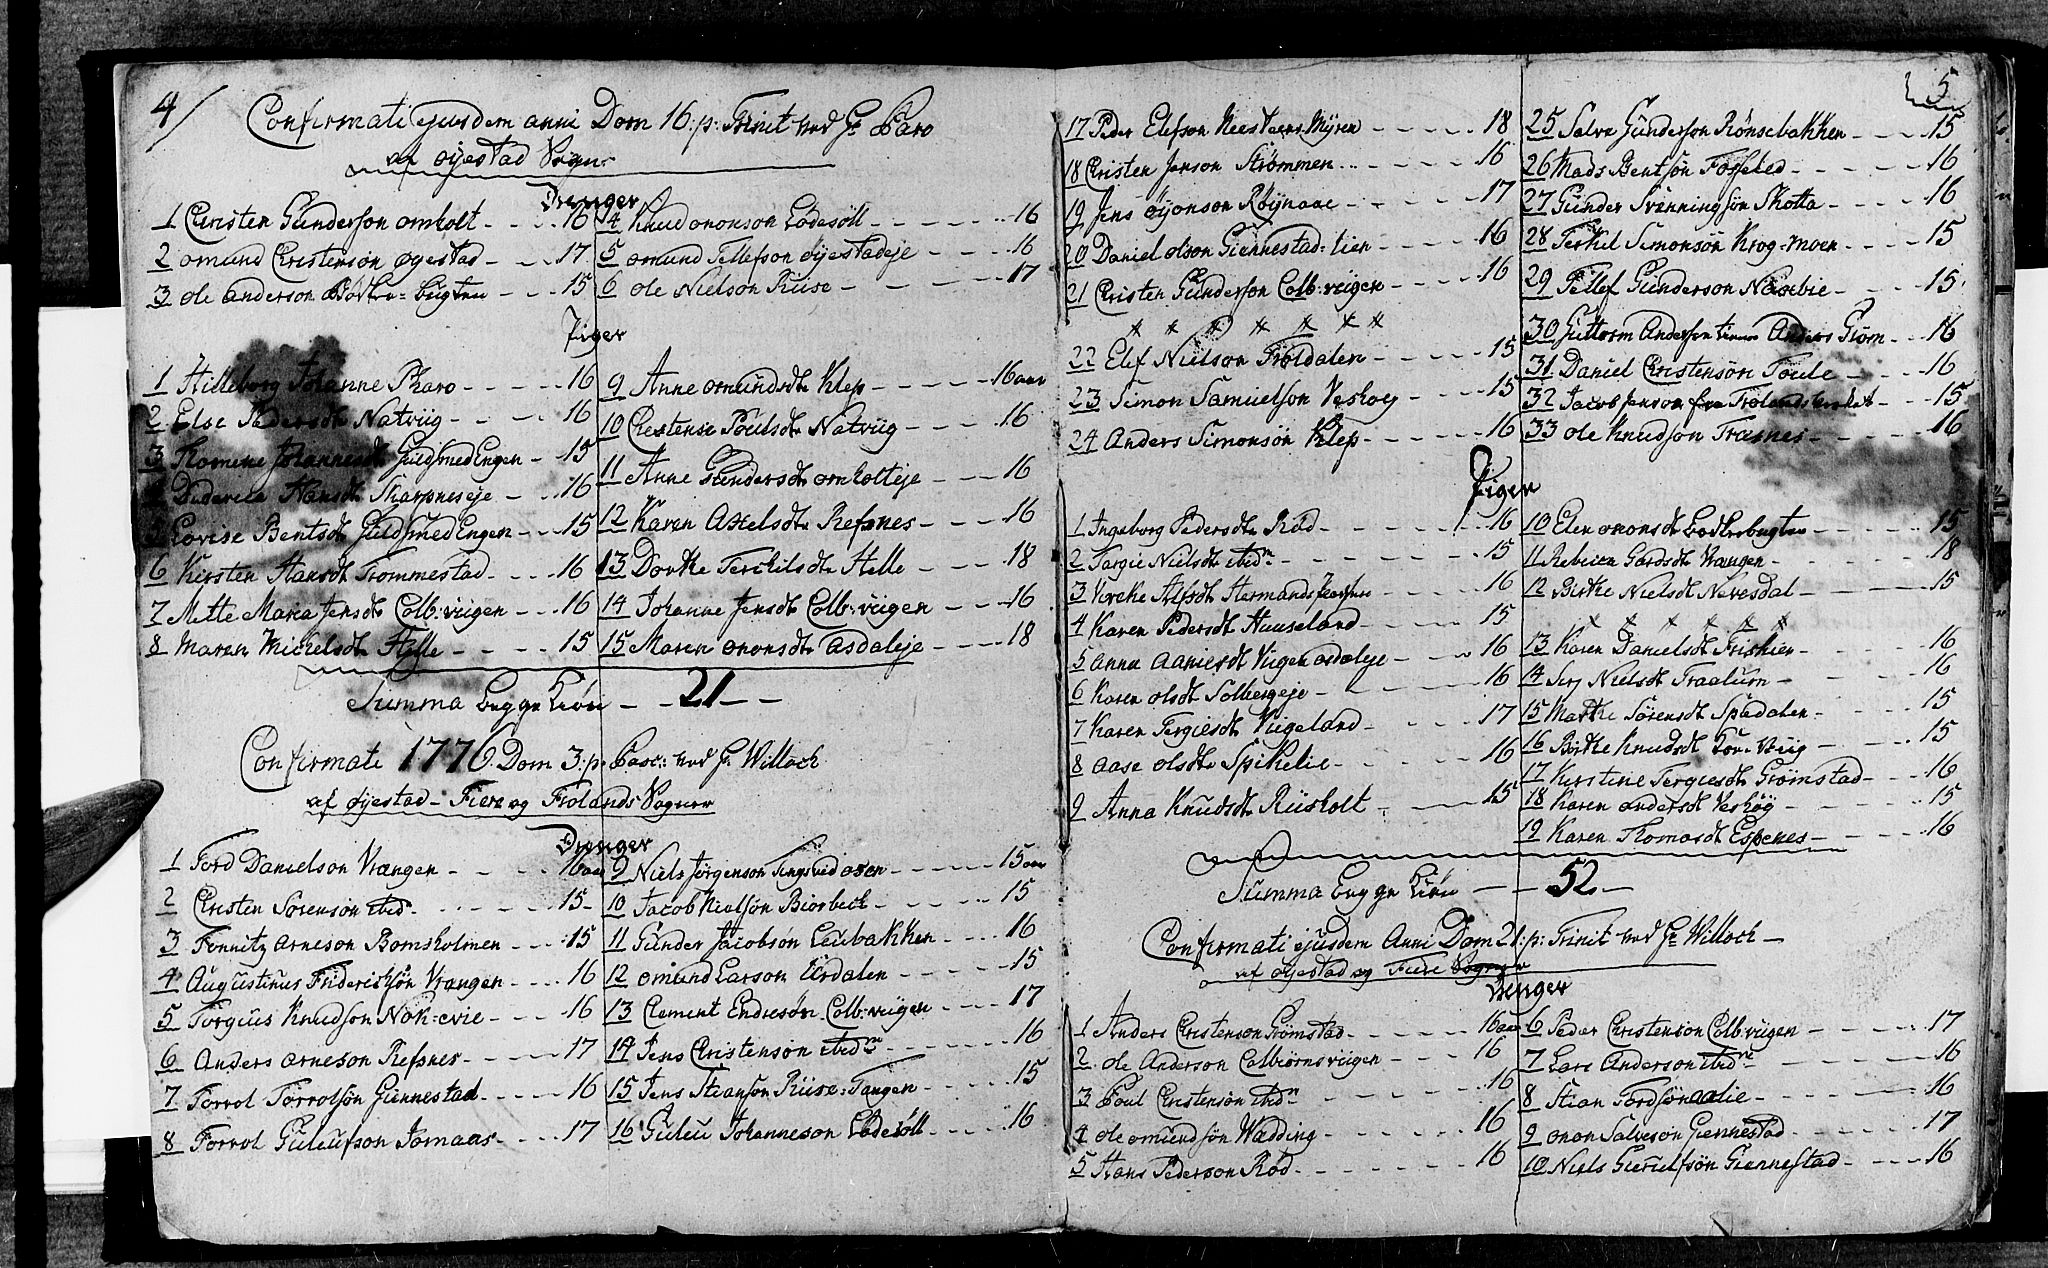 4/
Confirmati ejusdem anni Dom 16 p: Trinit ved Hr Faro
af Øyestad Sogn
Drenger
1 Christen Gunderson omholt - - - 16
2 omund Christenson øyestad - - - 17
3 ole anderson Bødker-bugten - - - 15
4 Knud ononson Lødesøll - - - 16
5 omund Tellefson øyestadeje - - - 16
6 ole Nielson Riise - - - 17
Piger
1 Hilleborg Johanne Pharo - - - 16
2 Else Pedersdt Natviig - - - 16
3 Johannesdt GuldsmedEngen - 15
Hansdt Skarpneseje - - 16
Lovise Bentsdt GuldsmedEngen - - 15
6 Kirsten Hansdt Trommestad - - - 16
7 Mette Maria Jensdt Colb:viigen - - - 16
8 Maren Michelsdt Helle - - - 15
9 Anne omundsdt Klep - - - 16 aar
10 Chrestense Poulsdt Natviig - - - 16
11 Anne Gundersdt omholteje - - - 16
12 Karen Axelsdt Refsnes - - - 16
13 Dorthe Terchilsdt Helle - - - 18
14 Johanne Jensdt Colb:viigen - - - 16
15 Maren ononsdt asdaleje - - - 18
Summa begge Kiøn - - 21 -
Confirmati 1776 Dom 3 p: Pasc: ved Hr Willoch
af øyestad - Fiere og Frolands Sogner
Drenger
1 Tord Danielson Vrangen - - - 16 aar
2 Christen Sørensøn ibid - - - 15
3 Arneson Bomsholmen - - - 15
4 Augustinus Friderichsøn Vrangen - - 16
5 Torgius Knudson Nøk-evie - - - 16
6 Anders arneson Refsnes - - - 17
7 Torrol Torrolsøn Giennestad - - - 16
8 Torrol Guleufson Jomaas - - - 17
9 Niels Jørgenson Tingsved osen - - - 15 aar
10 Jacob Nielsøn Biorbech - - - 15
11 Gunder Jacobsøn Leubakken - - - 16
12 omund Larson Urdalen - - - 15
13 Clement Endresøn Colb:viigen - - - 17
14 Jens Christensøn ibidm - - - 16
15 Jens Steanson Riise-Tangen - - - 15
16 Guleu Johanneson Lødesøll - - - 16
5
17 Peder Elefson Neesteens Myren - - - 18
18 Christen Jenson Strømmen - - - 16
19 Jens øyonson Røynaae - - - 17
20 Daniel olson Giennestad-lien - - - 16
21 Christen Gunderson Colb:viigen - - - 16
22 Elef Nielson Troldalen - - - 15
23 Simon Samuelson Veshog - - - 15
24 Anders Simonsøn Klep - - - 16
25 Salve Gunderson Rønsebakken - - - 15
26 Mads Bentsøn Fosseled - - - 16
27 Gunder Svenningsøn Skotta - - - 16
28 Terkil Simonsøn Krog-moen - - - 15
29 Tellef Gunderson Næsbie - - - 15
30 Guttorm Anderson Anders Grøm - - 16
31 Daniel Christensøn Foule - - - 16
32 Jacob Jenson fra Frolands - - - 15
33 ole Knudson Træsnes - - - 16
Piger
1 Ingeborg Pedersdt Rød - - - 16
2 Torgie Nielsdt ibidm - - - 15
3 Alfsdt Hermands - - - 16
4 Karen Pedersdt Huuseland - - - 15
5 Anna Aaniesdt Viigen asdaleje - - - 16
6 Karen olsdt Solbergeje - - - 16
7 Karen Tergiesdt Viigeland - - - 17
8 aase olsdt Spikelie - - - 16
9 Anna Knudsdt Riisholt - - - 15
10 Elen ononsdt Bodkerbugten - - - 15
11 Gordsdt Vrangen - - - 18
12 Birthe Nielsdt Nevesdal - - - 15
13 Karen Danielsdt Friskien - - - 16
14 Nielsdt Traalum - - - 16
15 Marthe Sørensdt Spedalen - - - 15
16 Birthe Knudsdt - - - 15
17 Kirstine Tergiesdt Grømstad - - - 16
18 Karen andersdt Veshøg - - - 15
19 Karen Thomasdt Espenes - - - 16
Summa begge Kiøn - - 52 -
Confirmati ejusdem Anni Dom 21 p: Trinit ved Hr Willoch -
af øyestad og Fiere Sogner
Drenger
1 Anders Christenson Grømstad - - - 16 aar
2 ole Anderson Colbiørnsviigen - - - 16
3 Poul Christensøn ibidm - - - 16
4 ole omundsøn Wadding - - - 16
5 Hans Pederson Rød - - - 16
6 Peder Christensøn Colb:viigen - - - 17
7 Lars Anderson ibidm - - - 16
8 Stian Tordsøn aalie - - - 16
9 onon Salvesøn Giennestad - - - 17
10 Niels Gieruldsøn Giennestad - - - 16